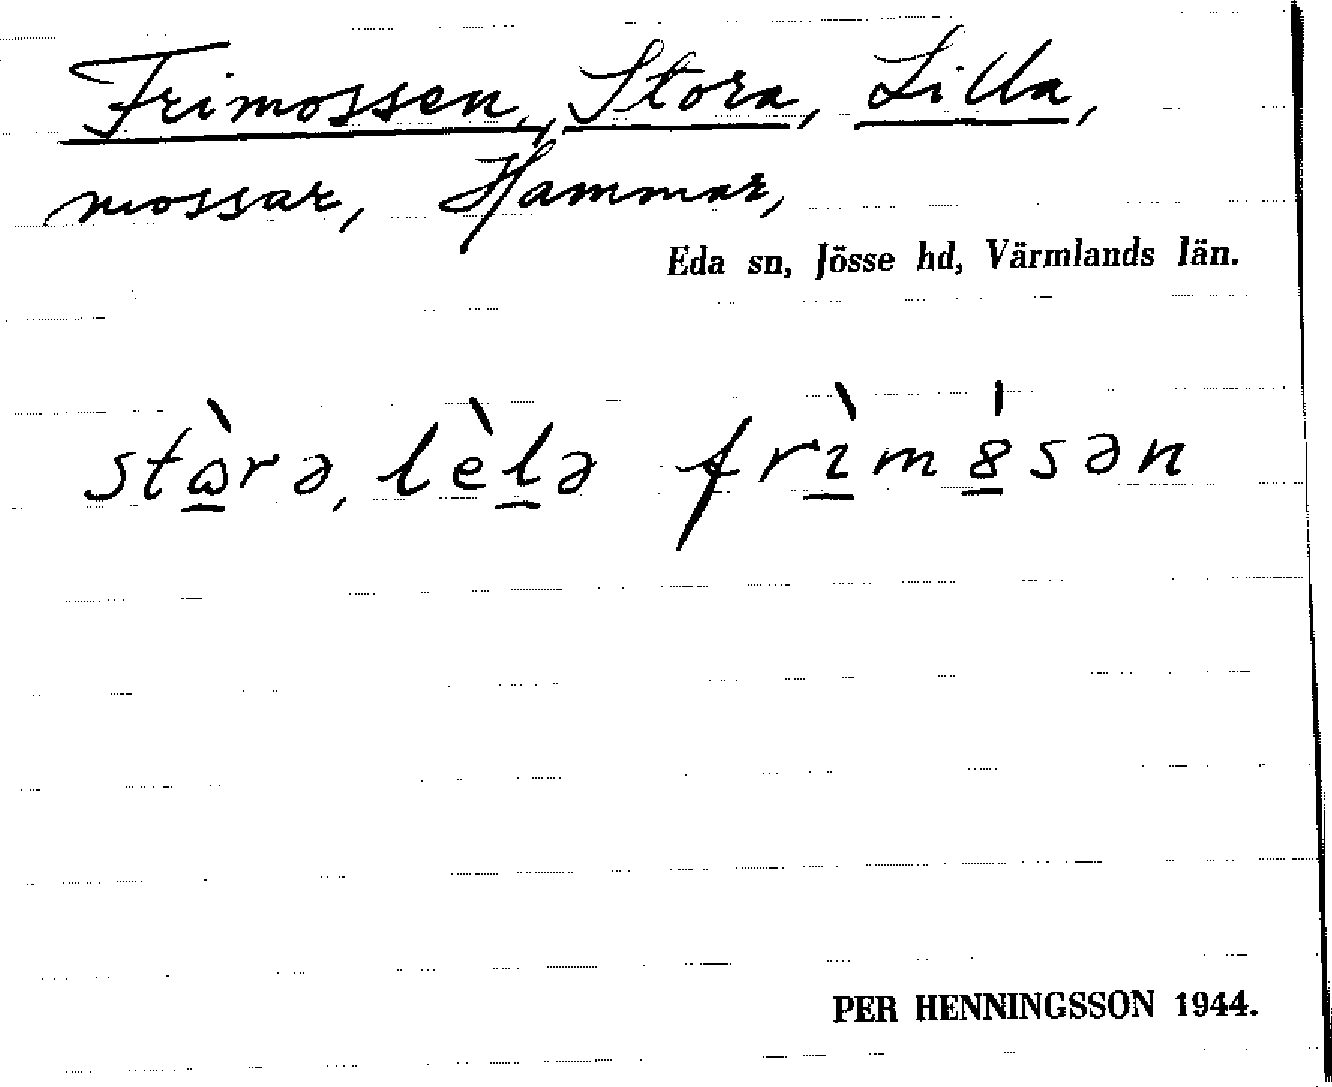 Frimossen, Stora, Lilla,
mossar, Hammar,
Eda sn, Jösse hd, Värmlands län.
stɷ̱̀rə, lèḻə frı̱̀m8̱̍sən
PER HENNINGSSON 1944.